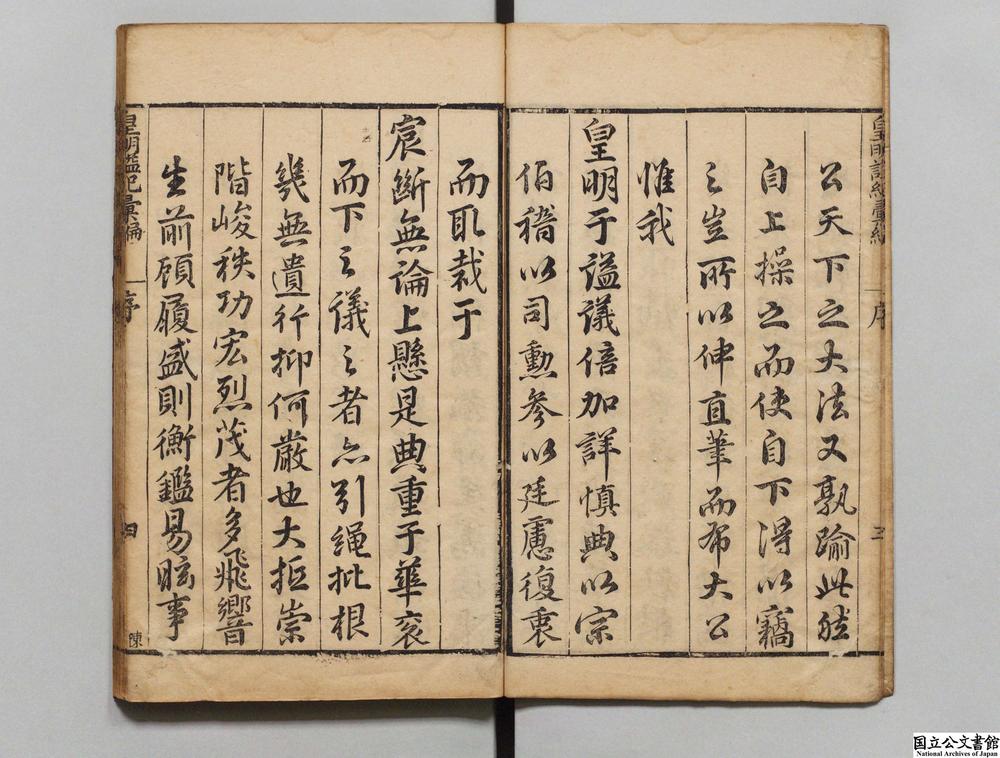 皇明謚紀彙編
序
三
公天下之大法又孰踰此然
自上操之而使自下得以竊
之豈所以伸直筆而布大公
惟我
皇明于謚議倍加詳慎典以宗
伯稽以司勳參以廷慮復衷
而取裁于
宸斷無論上懸是典重于華袞
而下之議之者亦引繩批根
幾無遺行抑何嚴也大抵崇
階峻秩功宏烈茂者多飛響
生前顧履盛則衡鑑易眩事
皇明謚紀彙編
序
四
陳
国立公文書館
National Archives of Japan